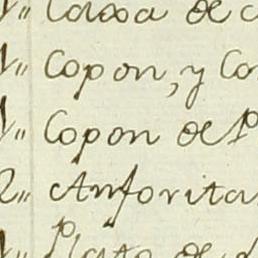 1,, Caxa de
1,, Copon, y
1,, Copon de
2,, Anforitas
1,, Plato de